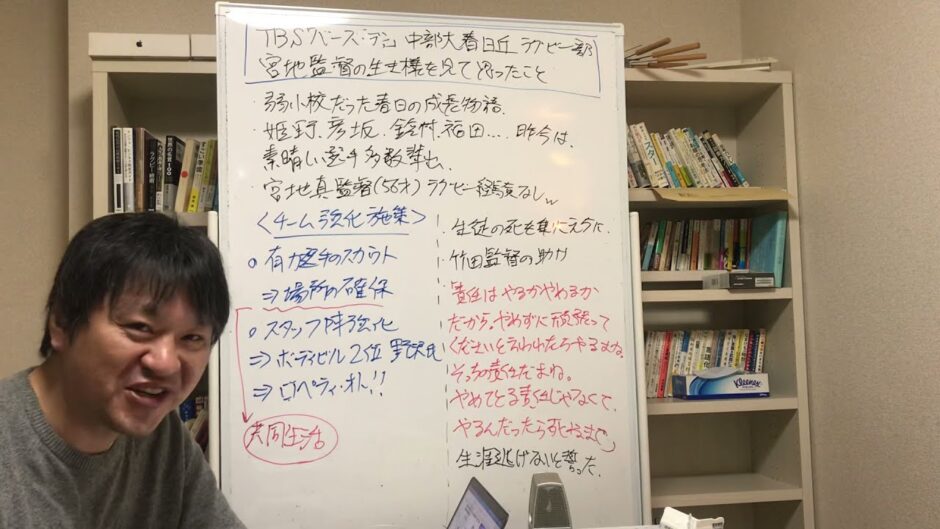 TBS「バース・デイ」 中部大春日丘 ラグビー部
宮地監督の生き様を見て思ったこと
・弱小校だった春日の成長物語.
・姫野.彦坂.鈴木.福田… 昨今は.
素晴しい選手多数輩出.
・宮地真監督(56才) ラグビー経験なしw
<チーム強化施策>
○ 有力選手のスカウト
⇒場所の確保
○ スタッフ陣強化
⇒ ボディビル2位 野沢氏
⇒ロペティ・オト!!
共同生活
・生徒の死も乗こえ今に.
・竹田監督の助け
責任はやるかやめるか
だから.やめずに頑張って
くださいと言われたらやるよね.
そっち責任だよね。
やめてとる責任じゃなくて.
やるんだったら死ぬまで
生涯逃げないと誓った.
Kleenex